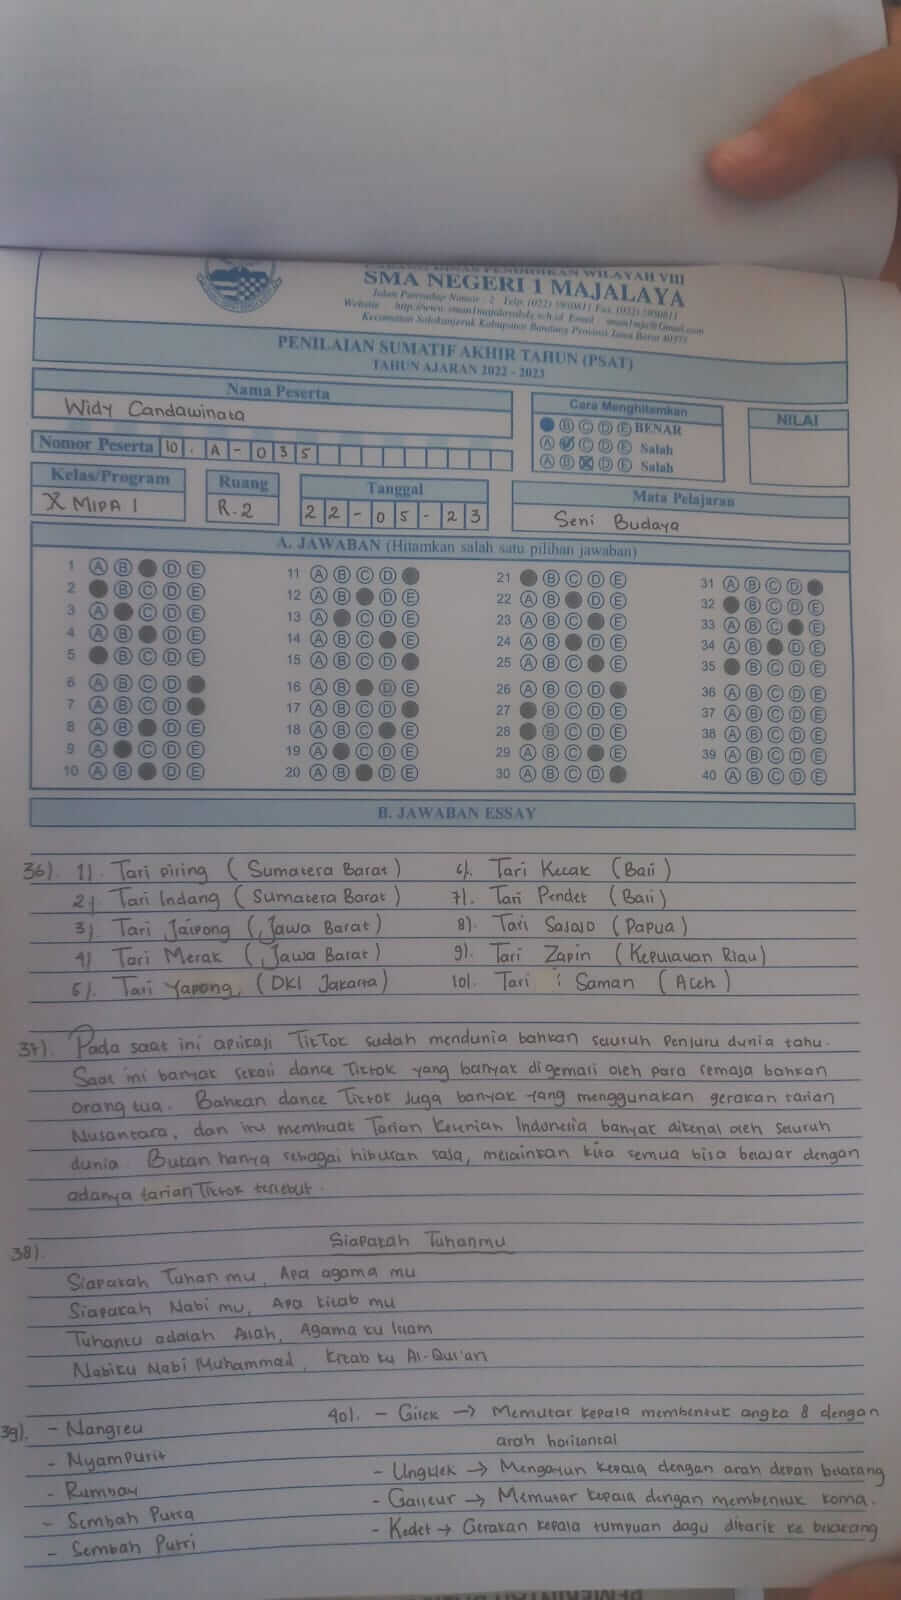 SMA NEGERI 1 MAJALAYA
PENILAIAN SUMATIF AKHIR TAHUN (PSAT)
TAHUN AJARAN 2022 - 2023
Nama Peserta
Widy Candawinata
Nomor Peserta 10. A-035
Kelas/Program
X MIPA 1
Ruang
R.2
Tanggal
22-05-23
Cara Menghitamkan
B C D E BENAR
A C D E Salah
A B D E Salah
NILAI
Mata Pelajaran
Seni Budaya
A. JAWABAN (Hitamkan salah satu pilihan jawaban)
1 A B D E
2 B C D E
3 A C D E
4 A B D E
5 B C D E
6 A B C D
7 A B C D
8 A B D E
9 A C D E
10 A B D E
11 A B C D
12 A B D E
13 A C D E
14 A B C E
15 A B C D
16 A B D E
17 A B C D
18 A B C E
19 A C D E
20 A B D E
21 B C D E
22 A B D E
23 A B C E
24 A B D E
25 A B C E
26 A B C D
27 B C D E
28 B C D E
29 A B C E
30 A B C D
31 A B C D
32 B C D E
33 A B C E
34 A B D E
35 B C D E
36 A B C D E
37 A B C D E
38 A B C D E
39 A B C D E
40 A B C D E
B. JAWABAN ESSAY
36). 1). Tari piring (Sumatera Barat)
2). Tari Indang (Sumatera Barat)
3). Tari Jaipong (Jawa Barat)
4). Tari Merak (Jawa Barat)
5). Tari Yapong (DKI Jakarta)
6). Tari Kecak (Bali)
7). Tari Pendet (Bali)
8). Tari Sajojo (Papua)
9). Tari Zapin (Kepulauan Riau)
10). Tari : Saman (Aceh)
37). Pada saat ini aplikasi TikTok sudah mendunia bahkan seluruh penjuru dunia tahu.
Saat ini banyak sekali dance Tiktok yang banyak digemari oleh para remaja bahkan
orang tua. Bahkan dance Tiktok juga banyak yang menggunakan gerakan tarian
Nusantara, dan itu membuat Tarian kesenian Indonesia banyak dikenal oleh seluruh
dunia. Bukan hanya sebagai hiburan saja, melainkan kita semua bisa belajar dengan
adanya tarian Tiktok tersebut.
38). Siapakah Tuhanmu
Siapakah Tuhan mu, Apa agama mu
Siapakah Nabi mu, Apa kitab mu
Tuhanku adalah Allah, Agama ku Islam
Nabiku Nabi Muhammad, kitab ku Al-Qur'an
39). - Nangreu
- Nyampurit
- Rumbay
- Sembah Putra
- Sembah Putri
40). - Gilek → Memutar kepala membentuk angka 8 dengan
arah horizontal
- Unguek → Mengayun kepala dengan arah depan belakang
- Galleur → Memutar kepala dengan membentuk koma.
- Kedet → Gerakan kepala tumpuan dagu ditarik ke belakang